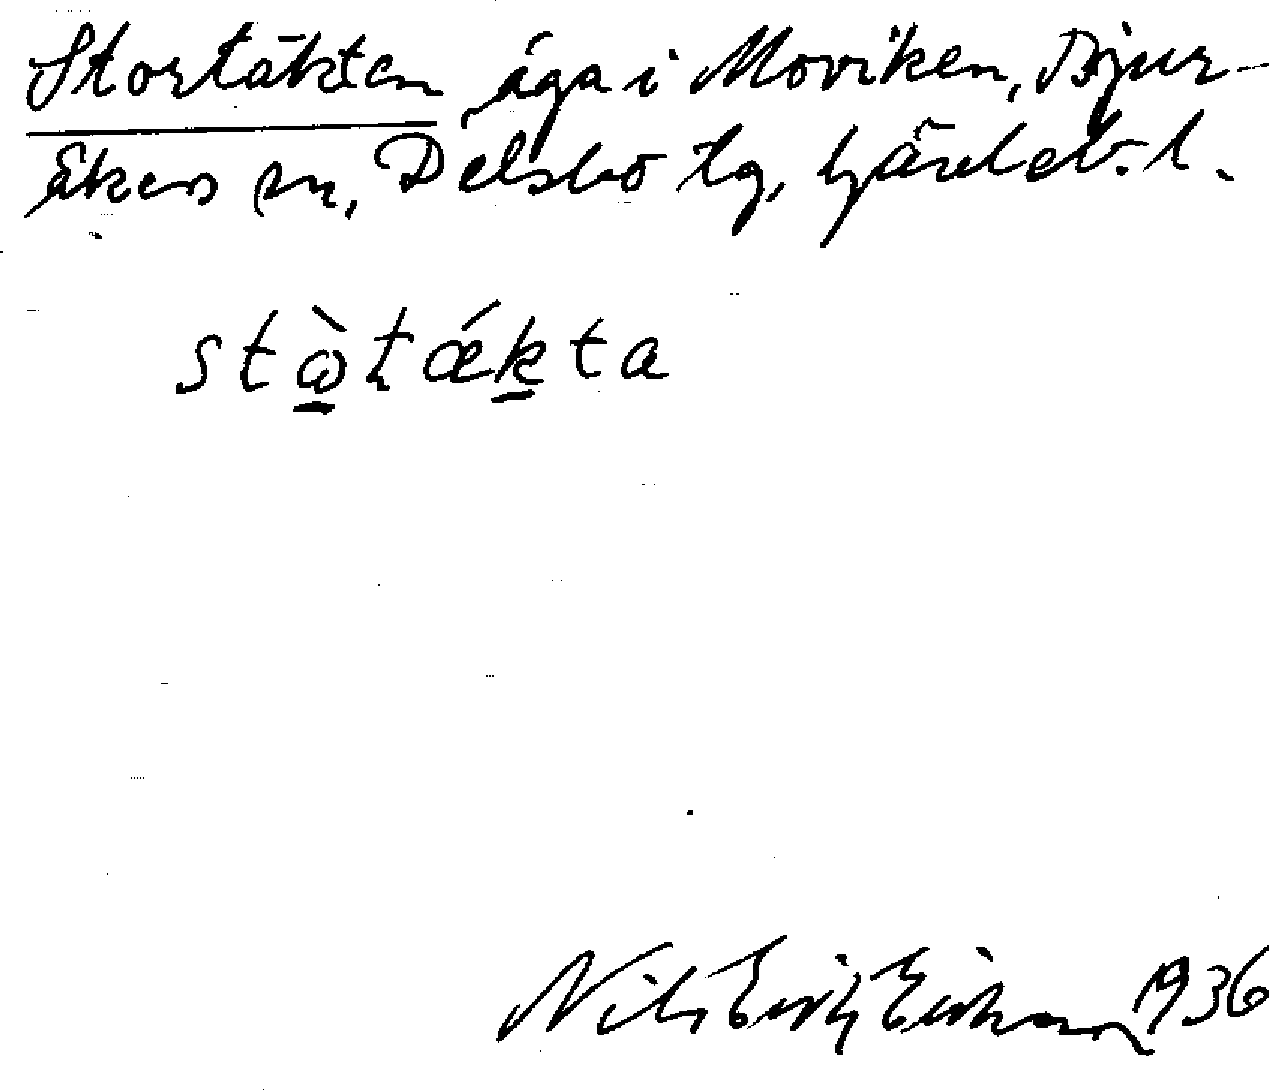 Stortäkten, äga i Moviken, Bjur-
åkers sn, Delsbo tg, Gävleb. l.
stὼtǽkta
Nils Erik Eriksson 1936